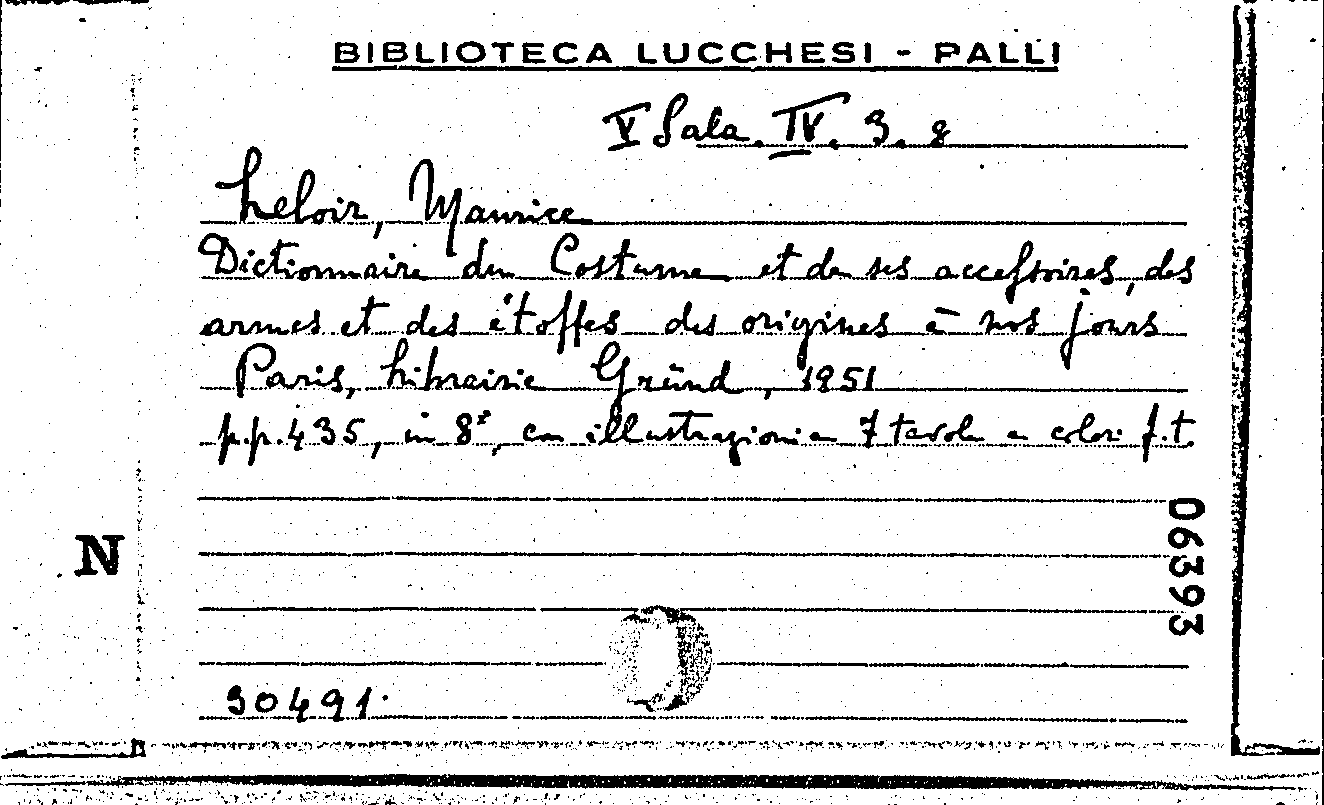 BIBLIOTECA LUCCHESI - PALLI
V Sala. IV. 3. 8
Leloir, Maurice
Dictionnaire du Costume et de ses accessoires, des
armes et des étoffes des origines à nos jours
Paris, Librairie Gründ, 1951
p.p. 435, in 8°, con illustrazioni e 7 tavole a colori f.t.
06393
N
30491.